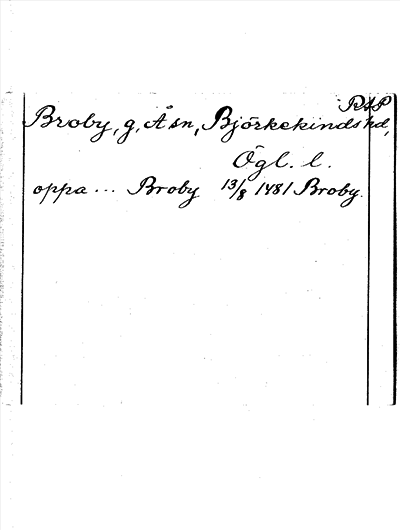 RAP
Broby, g, Åsn, Björkekinds hd,
Ögl. l.
oppa ... Broby 13/8 1481 Broby.